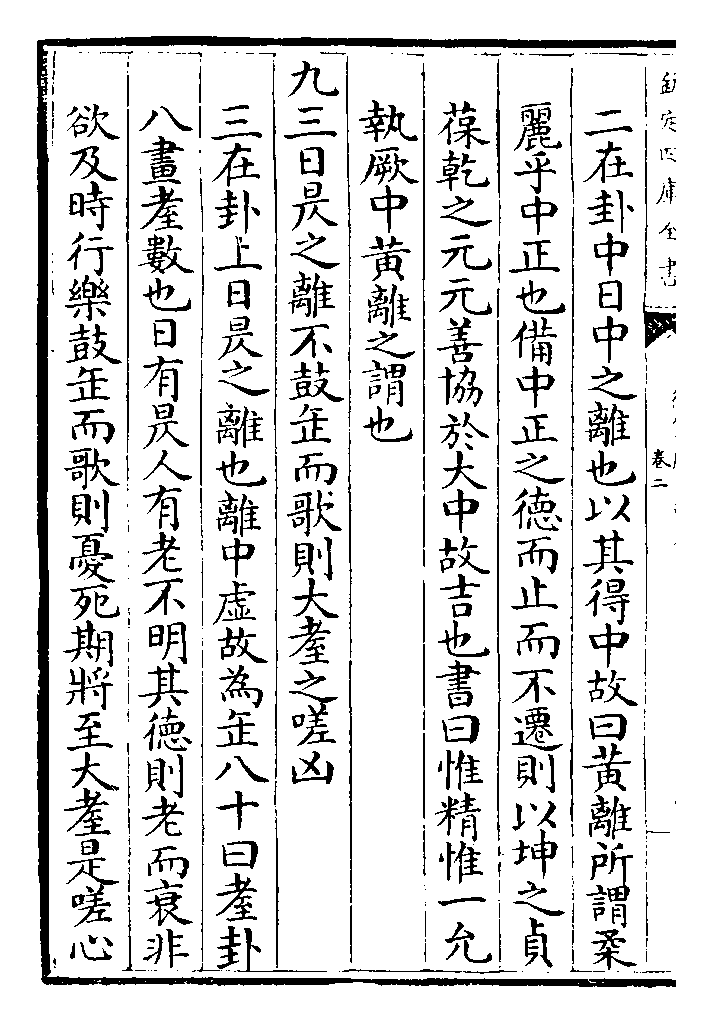 欽定四庫全書
卷二
二在卦中日中之離也以其得中故曰黄離所謂柔
麗乎中正也備中正之徳而止而不遷則以坤之貞
葆乾之元元善協於大中故吉也書曰惟精惟一允
執厥中黄離之謂也
九三日昃之離不鼓缶而歌則大耋之嗟凶
三在卦上日昃之離也離中虚故為缶八十曰耋卦
八畫耋數也日有昃人有老不明其徳則老而衰非
欲及時行樂鼓缶而歌則憂死期將至大耋是嗟心